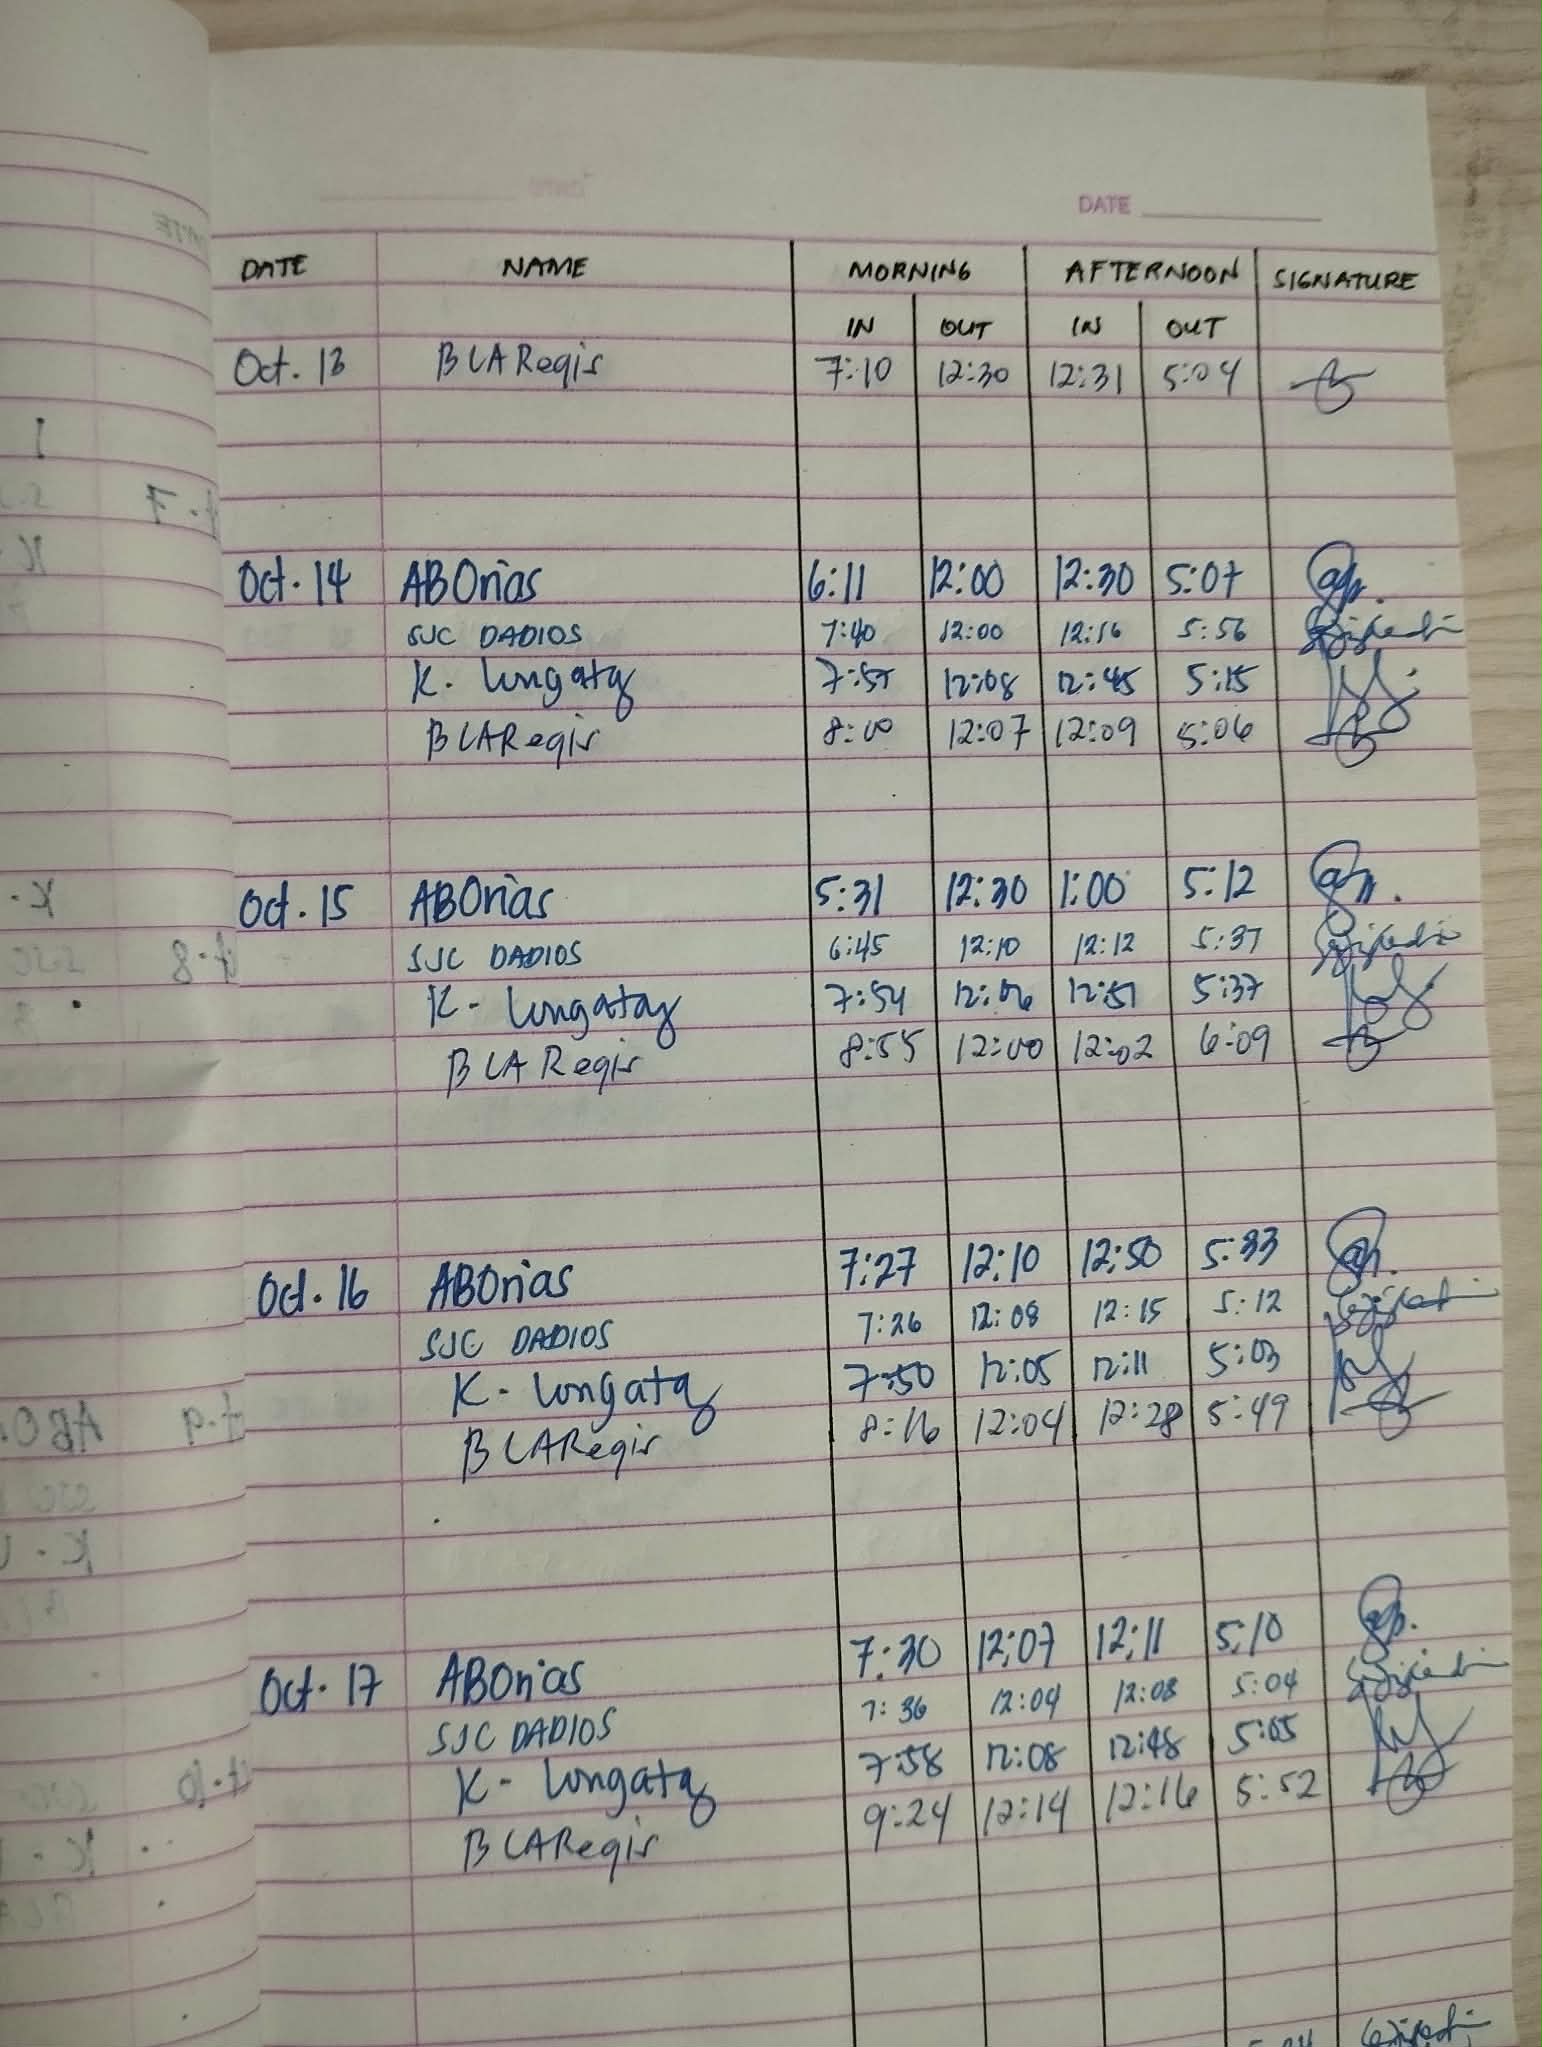 DATE
DATE NAME MORNING AFTERNOON SIGNATURE
IN OUT IN OUT
Oct. 13 BLARegis 7:10 12:30 12:31 5:04
Oct. 14 ABOrias 6:11 12:00 12:30 5:07
SJC DADIOS 7:40 12:00 12:16 5:56
K. Lungatay 7:57 12:08 12:45 5:15
BLARegis 8:00 12:07 12:09 5:06
Oct. 15 ABOrias 5:31 12:30 1:00 5:12
SJC DADIOS 6:45 12:10 12:12 5:37
K- Lungatay 7:54 12:06 12:51 5:37
BLARegis 8:55 12:00 12:02 6:09
Oct. 16 ABOrias 7:27 12:10 12:50 5:33
SJC DADIOS 7:26 12:08 12:15 5:12
K- Lungatay 7:50 12:05 12:11 5:03
BLARegis 8:16 12:04 12:28 5:49
Oct. 17 ABOrias 7:30 12:07 12:11 5:10
SJC DADIOS 7:36 12:04 12:08 5:04
K- Lungatay 7:58 12:08 12:48 5:05
BLARegis 9:24 12:14 12:16 5:52